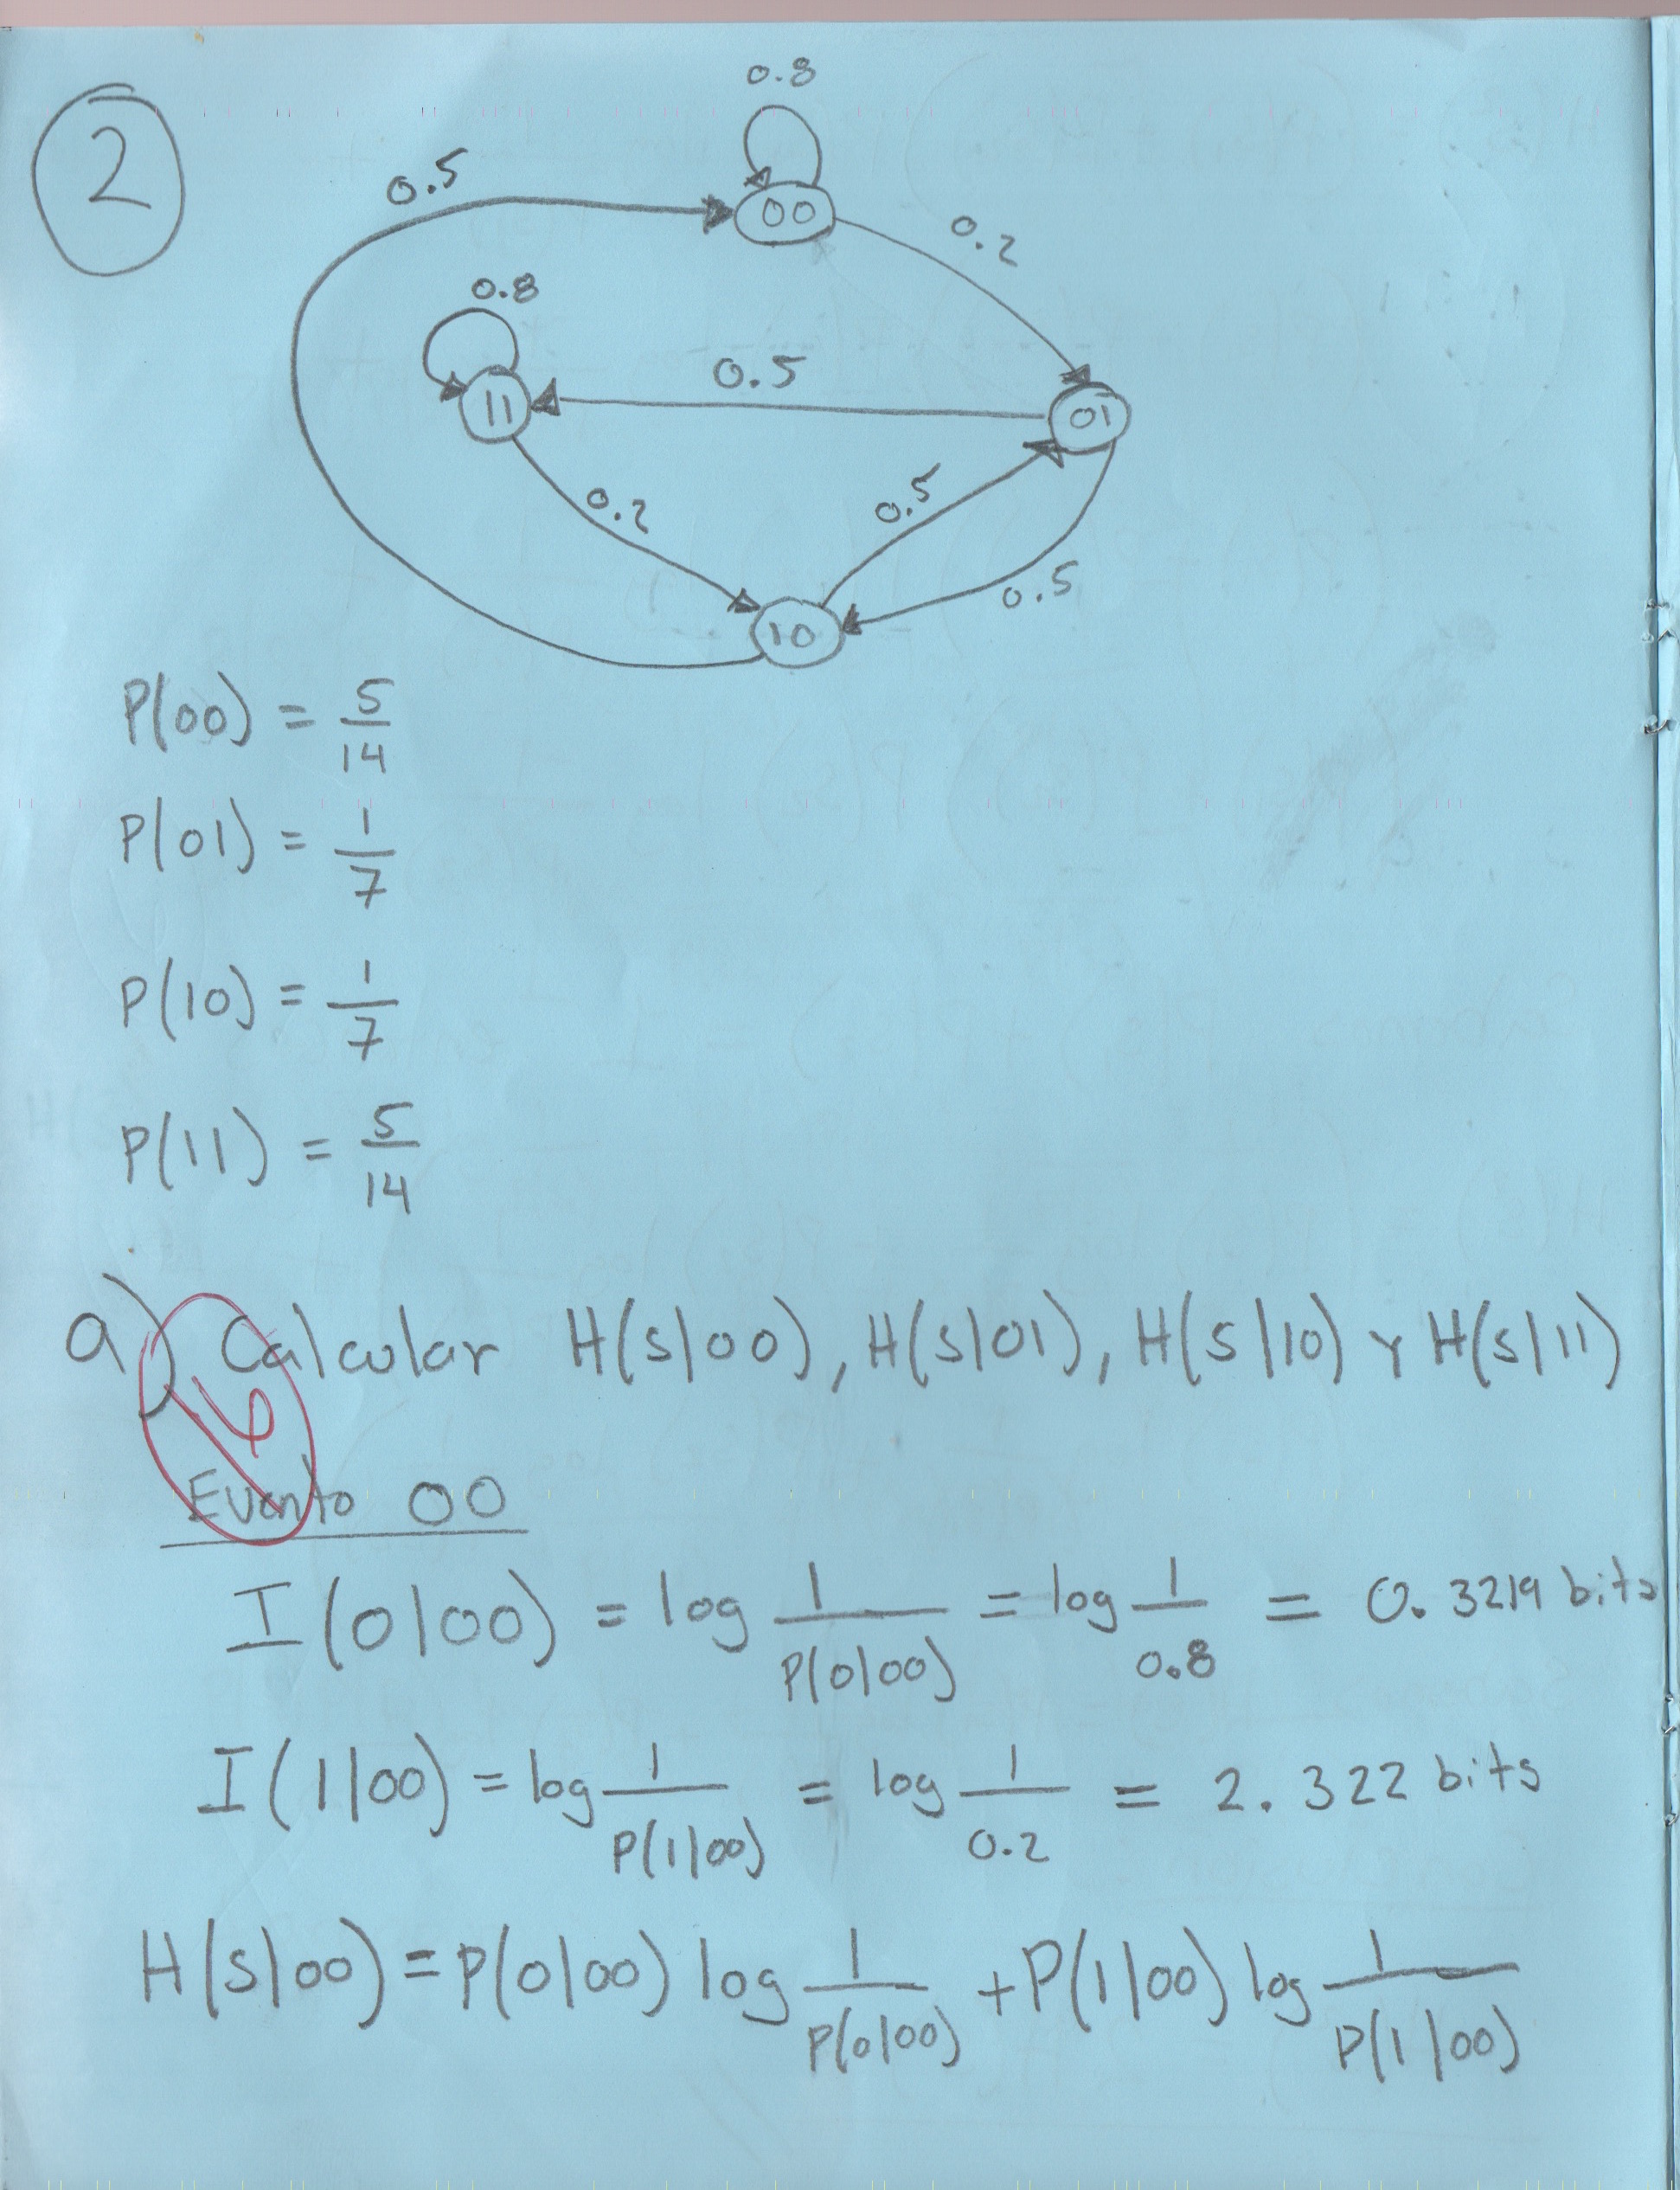 2
0.8
0.5
00
0.2
0.8
0.5
11
01
0.2
0.5
0.5
10
P(00) = 5/14
P(01) = 1/7
P(10) = 1/7
P(11) = 5/14
a) Calcular H(S|00), H(S|01), H(S|10) Y H(S|11)
Evento 00
I(0|00) = log 1/P(0|00) = log 1/0.8 = 0.3219 bits
I(1|00) = log 1/P(1|00) = log 1/0.2 = 2.322 bits
H(S|00) = P(0|00) log 1/P(0|00) + P(1|00) log 1/P(1|00)